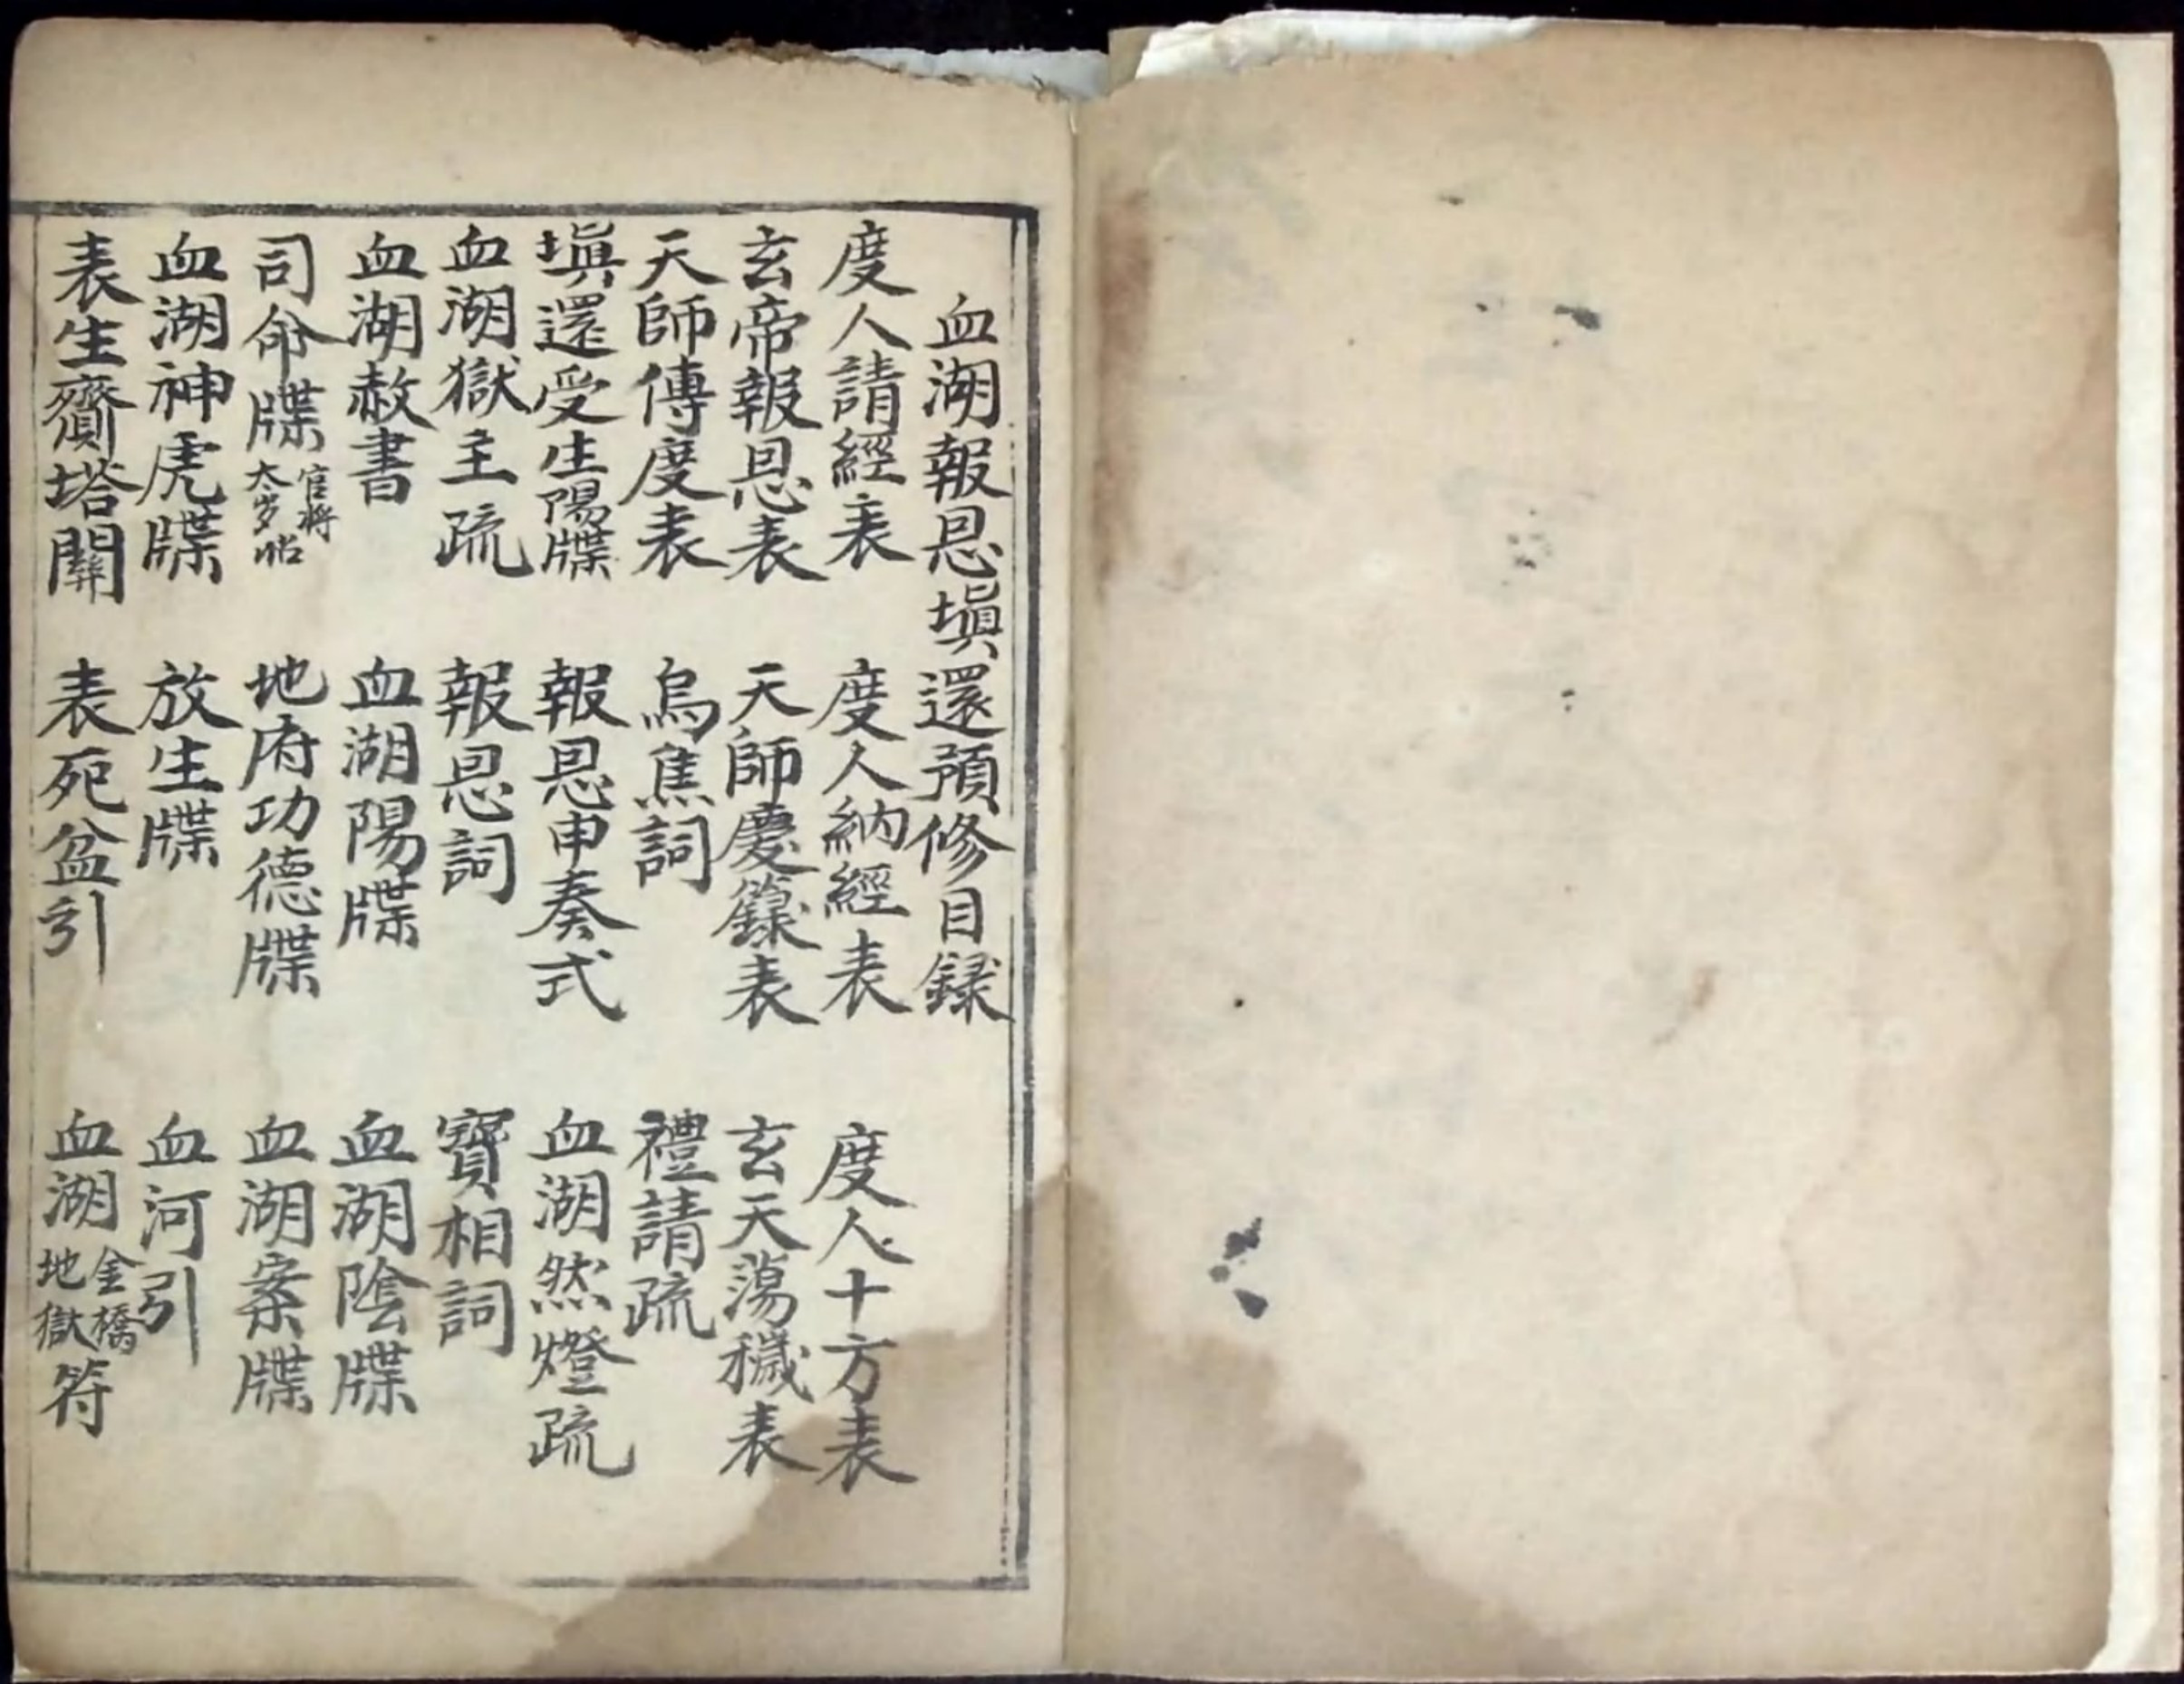 血湖報恩填還預修目録
度人請經表　度人納經表　度人十方表
玄帝報恩表　天師慶籙表　玄天蕩穢表
天師傳度表　烏焦詞　禮請疏
填還受生陽牒　報恩申奏式　血湖然燈疏
血湖獄主疏　報恩詞　寶相詞
血湖赦書　血湖陽牒　血湖陰牒
司命牒官將太岁帖　地府功德牒　血湖案牒
血湖神虎牒　放生牒　血河引
表生齎塔關　表死盆引　血湖金橋地獄符